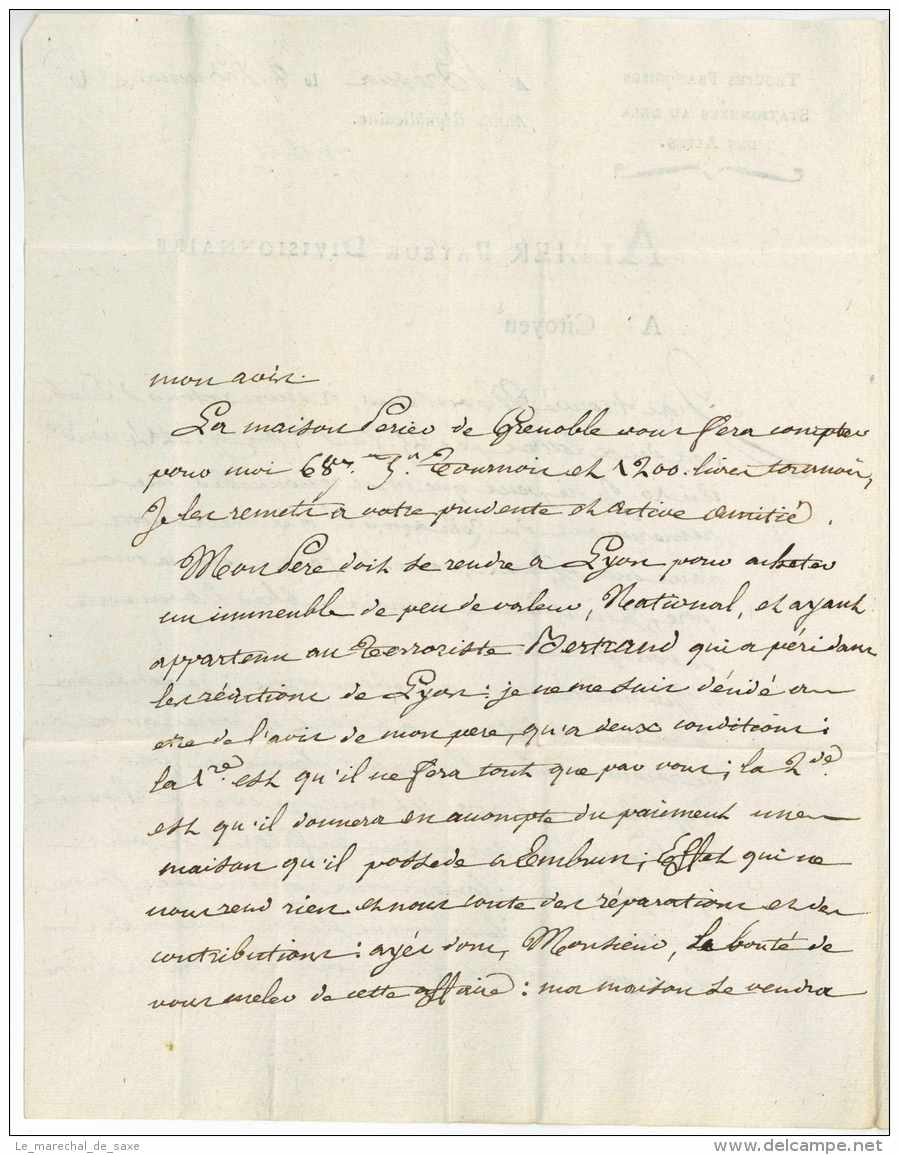 mon avis.
La maison Perier de Grenoble vous fera compter
pour moi 68 Tournois et 1200. livres tournois,
Je les remets a votre prudente et active amitié.
Mon Pere doit se rendre a Lyon pour acheter
un immeuble de peu de valeur, National, et ayant
appartenu au Terroriste Bertrand qui a péri dans
les réactions de Lyon: je ne me suis décidé a
etre de l'avis de mon pere, qu'a deux conditions:
la 1re. est qu'il ne fera tout que par vous; la 2de.
est qu'il donnera en acompte du paiement une
maison qu'il possede a Embrun; Effet qui ne
nous rend rien et nous coute des réparations et des
contributions: ayés donc, Monsieur, la bonté de
vous meler de cette affaire: ma maison se vendra
TROUPES FRANÇAISES
STATIONNÉES AU DELA
DES ALPES.
Année Républicaine.
PAYEUR DIVISIONNAIRE
Au Citoyen
Le_marechal_de_saxe
www.delcampe.net